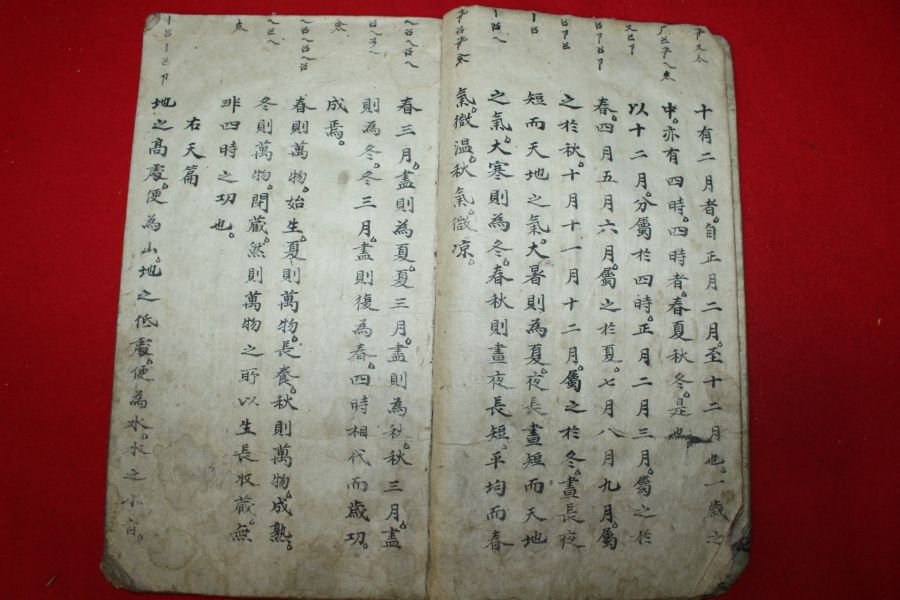 十有二月者。自正月二月。至十二月也。一歲之
中。亦有四時。四時者。春夏秋冬。是也
以十二月。分屬於四時。正月二月三月。屬之於
春。四月五月六月。屬之於夏。七月八月九月。屬
之於秋。十月十一月十二月。屬之於冬。晝長夜
短而天地之氣。大暑則為夏。夜長晝短而天地
之氣。大寒則為冬。春秋則晝夜長短。平均而春
氣。微溫。秋氣。微凉。
春三月。盡則為夏。夏三月。盡則為秋。秋三月。盡
則為冬。冬三月。盡則復為春。四時相代而歲功。
成焉。
春則萬物。始生。夏則萬物。長養。秋則萬物。成熟。
冬則萬物。閉藏。然則萬物之所以生長收藏。無
非四時之功也。
右天篇
地之高處。便為山。地之低處。便為水。水之小者。